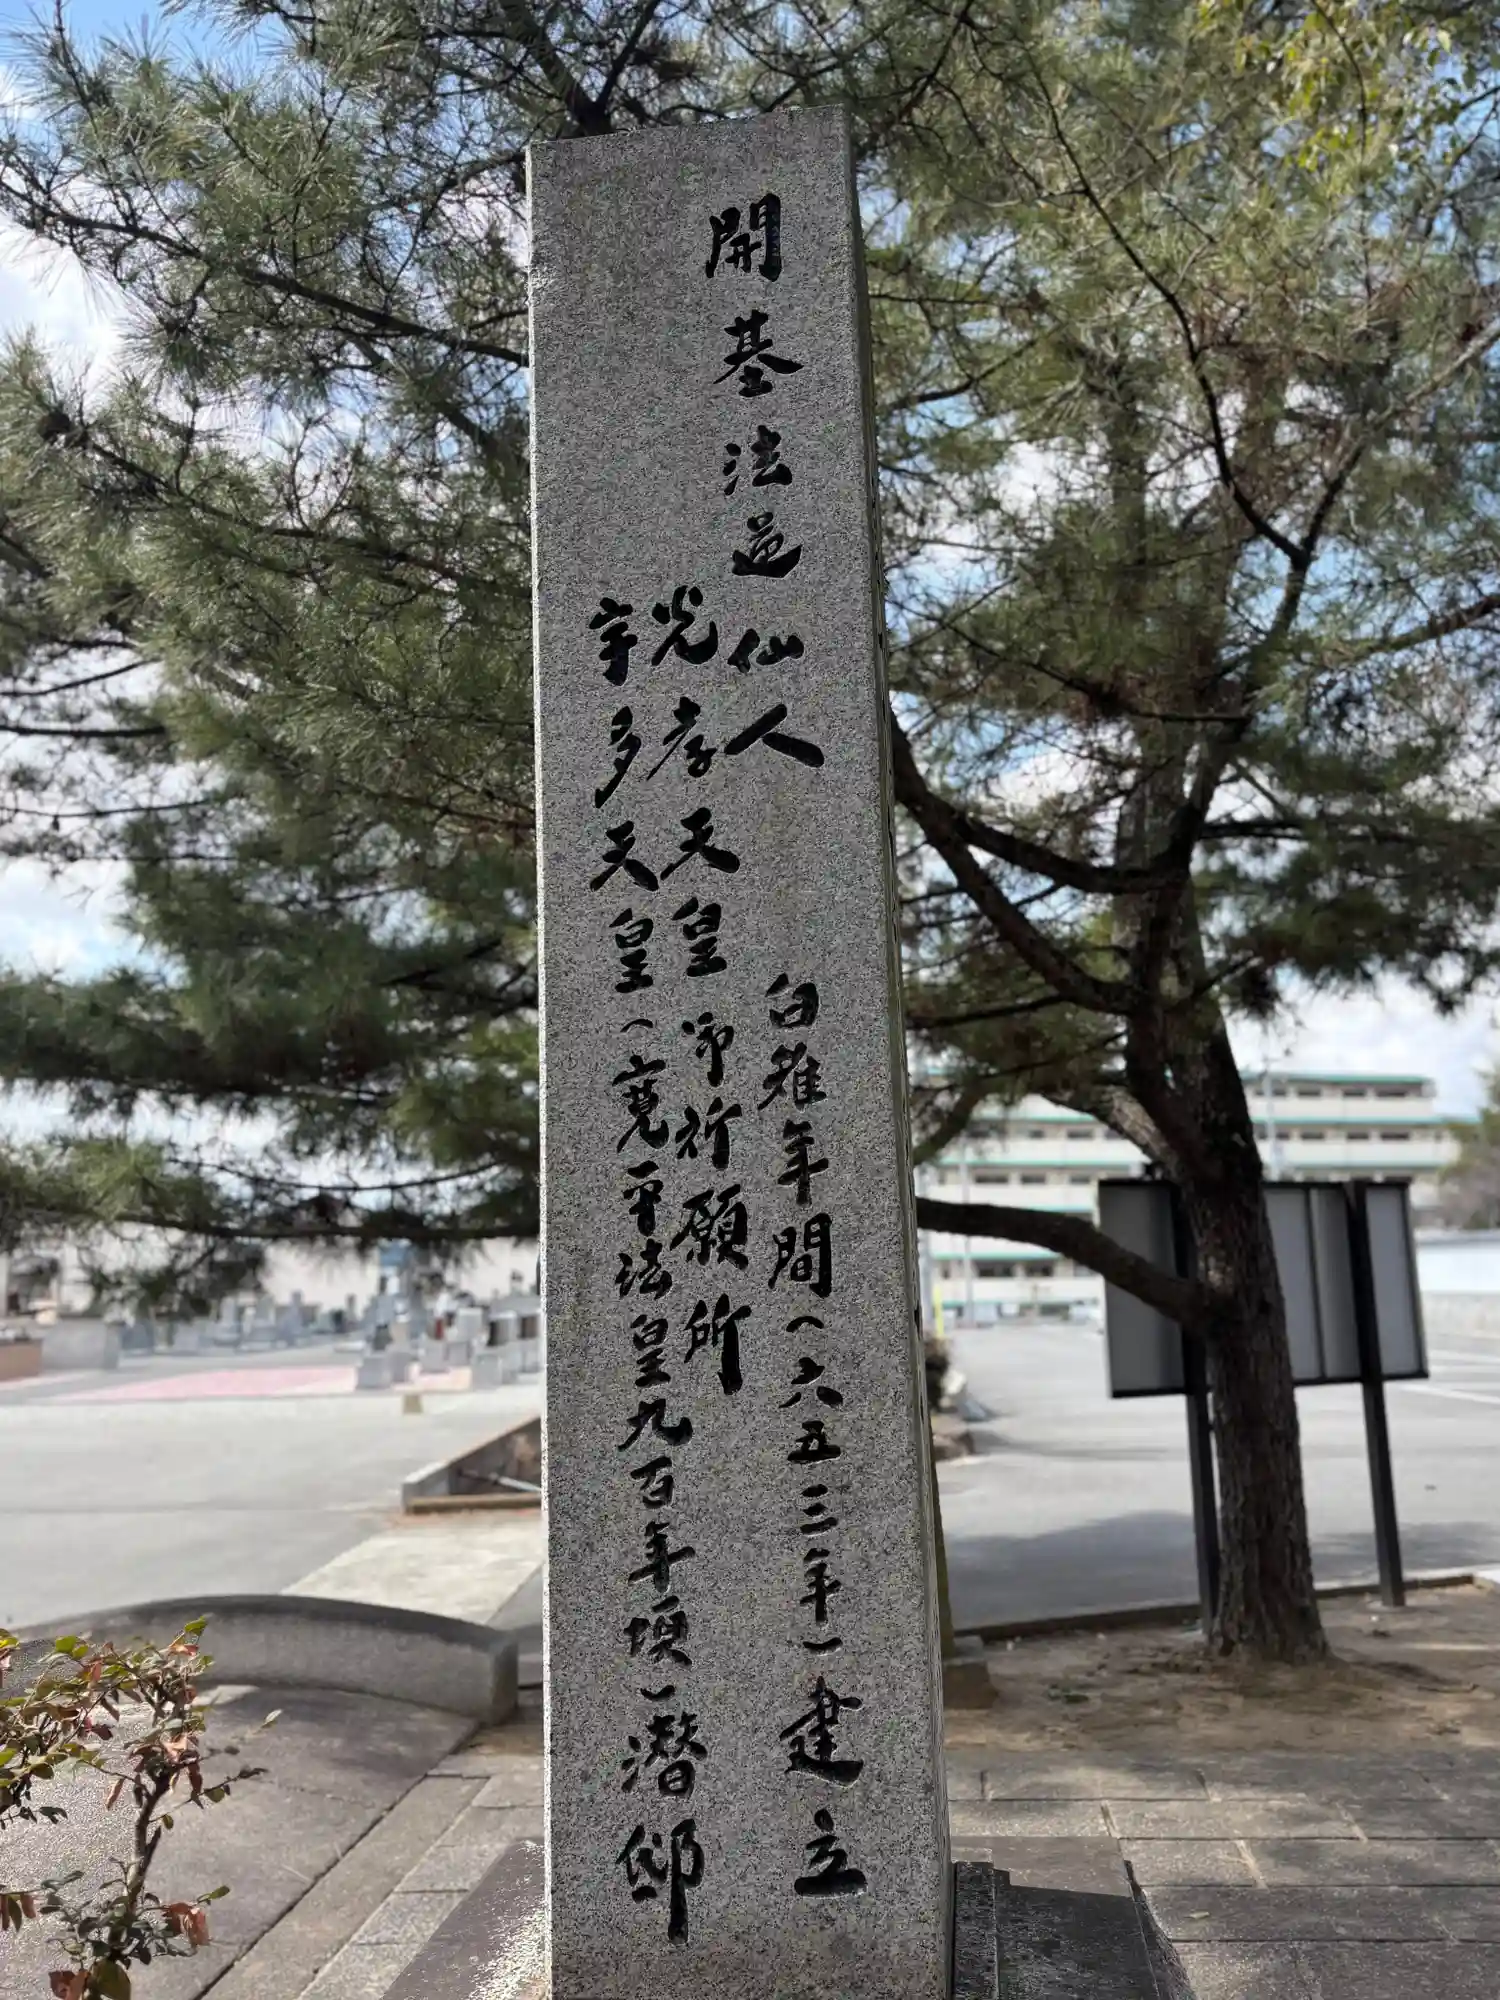 開基法道仙人 白雉年間(六五三年)建立
光孝天皇御祈願所
宇多天皇(寛平法皇九百年頃)潜邸